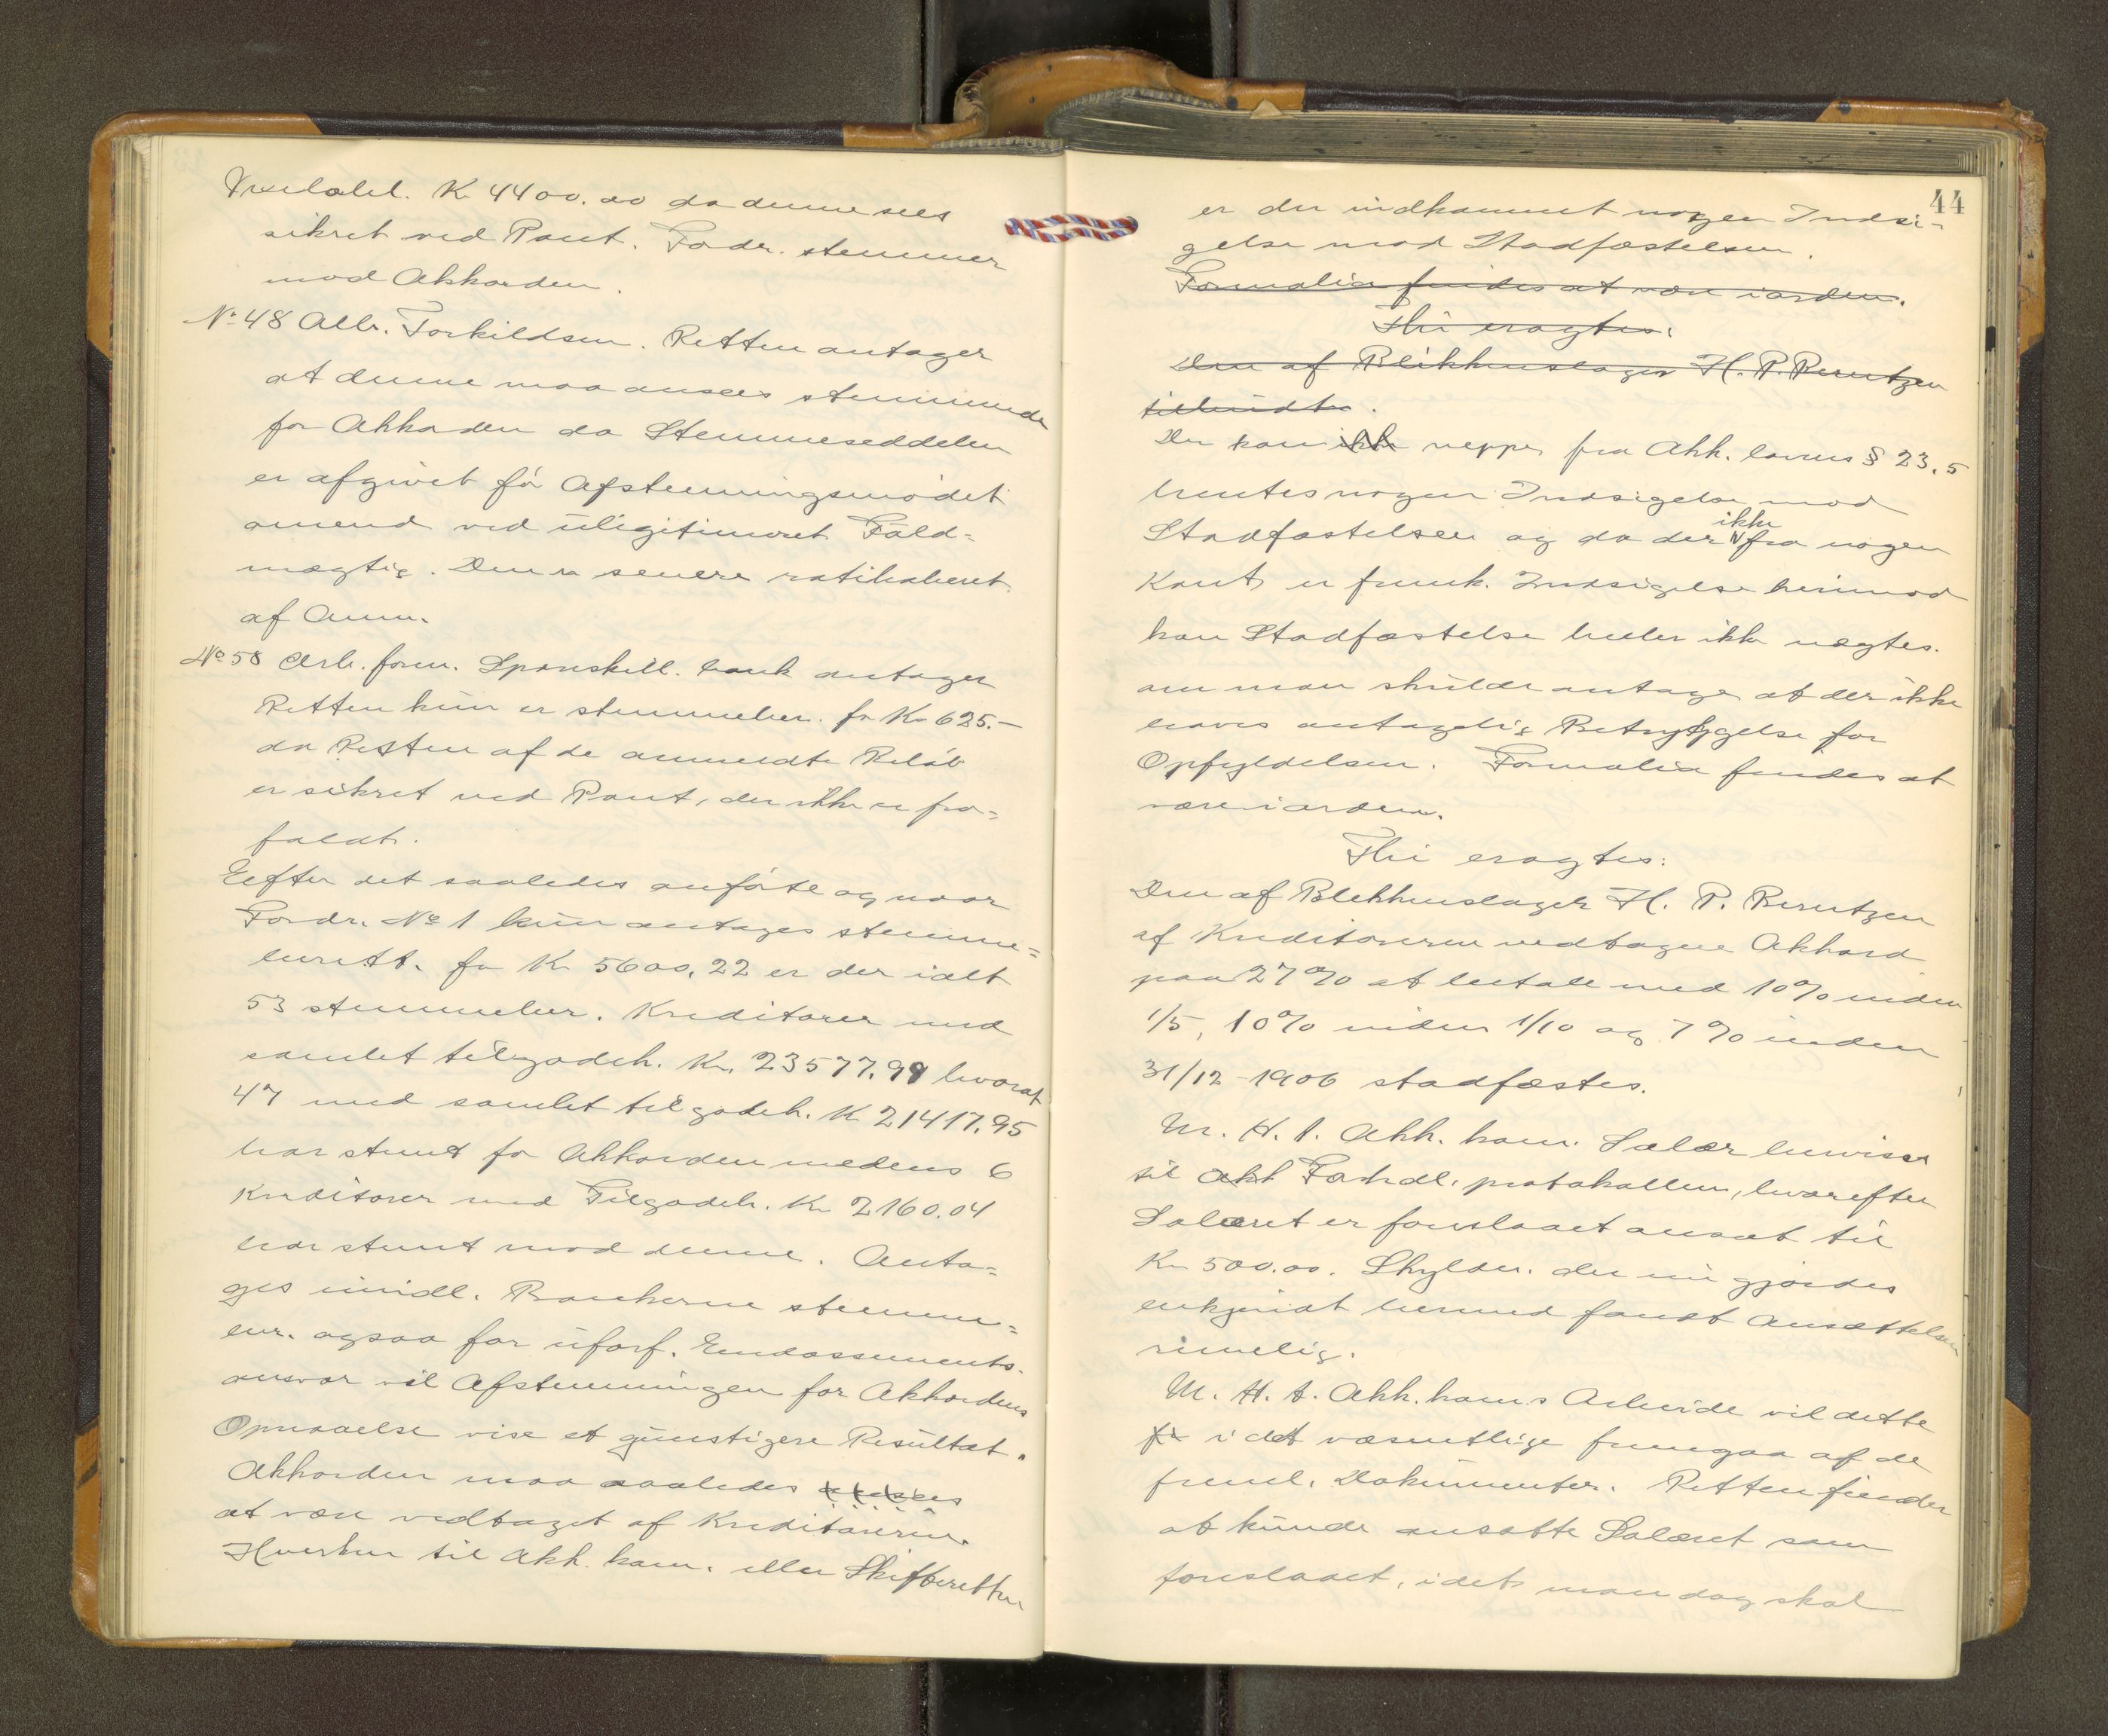 Vexelobl. Kr 4400.00 da denne sees
sikret ved Pant. Fordr. stemmer
mod Akkorden.
No 48 Alb. Torkildsen. Retten antager
at denne maa ansees stemmende
for Akkorden da Stemmeseddelen
er afgivet før Afstemningsmødet
omend ved uligitimeret Fuld=
mægtig. Den er senere ratihaberet
af Anm.
No 58 Arb. foren. Spareskill. bank antager
Retten kun er stemmeber. for Kr 625.-
da Resten af de anmeldte Beløb
er sikret ved Pant, der ikke er fra=
faldt.
Eefter det saaledes anførte og naar
Fordr. No 1 kun antages stemme=
berett. for Kr 5600,22 er der ialt
53 stemmeber. Kreditorer med
samlet tilgodeh. Kr. 23577,99 hvoraf
47 med samlet tilgodeh. Kr 21417,95
har stemt for Akkorden medens 6
Kreditorer med Tilgodeh. Kr 2160.04
har stemt mod denne. Anta=
ges imidl. Bankerne stemme=
ber. ogsaa for uforf. Endossements-
ansvar vil Afstemningen for Akkordens
Opnaaelse vise et gunstigere Resultat.
Akkorden maa saaledes ansees
at være vedtaget af Kreditorerne.
Hverken til Akk. kom. eller Skifteretten
44
er der indkommet nogen Indsi-
gelse mod Stadfæstelsen.
Formalia findes at være iorden.
Thi eragtes:
Den af Blikkenslager H. P. Berntzen
tilbudte.
Der kan ikke neppe fra Akk. lovens § 23,5
hentes nogen Indsigelse mod
Stadfæstelsen og da der ikke fra nogen
Kant er fremk. Indsigelse herimod
kan Stadfæstelse heller ikke nægtes.
om man skulde antage at der ikke
haves antagelig Betryggelse for
Opfyldelsen. Formalia findes at
være iorden.
Thi eragtes:
Den af Blekkenslager H. P. Berntzen
af Kreditorerne vedtagne Akkord
paa 27% at betale med 10% inden
1/5, 10% inden 1/10 og 7% inden
31/12 - 1906 stadfæstes.
M. H. t. Akk. kom. Salær henvises
til Akk Forhdl. protokollen, hvorefter
Salæret er foreslaaet ansat til
Kr 500.00. Skylder. der nu gjordes
bekjendt hermed fandt Ansættelsen
rimelig.
M. H. t. Akk. kom.s Arbeide vil dette
fr i det væsentlige fremgaa af de
freml. Dokumenter. Retten finder
at kunde ansætte Salæret som
foreslaaet, idet man dog skal